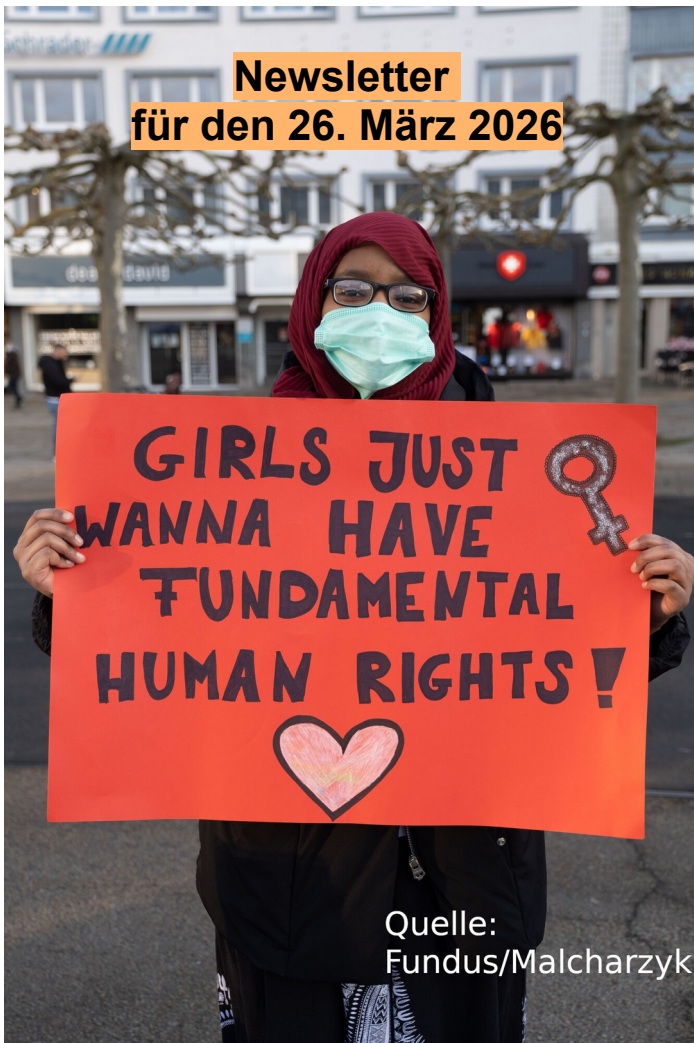 Schrader
Newsletter
für den 26. März 2026
GIRLS JUST
WANNA HAVE
FUNDAMENTAL
HUMAN RIGHTS!
Quelle:
Fundus/Malcharzyk